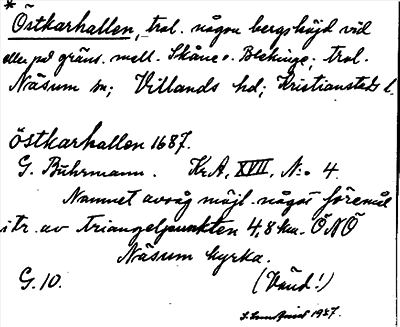 * Östkarhallen, trol. någon bergshöjd vid
eller på gräns. mell. Skåne o. Blekinge; trol.
Näsum sn; Villands hd; Kristianstads l.
Östkarhallen 1687.
G. Buhrmann. Kr.A. XVII, N:o 4.
Namnet avsåg möjl. något föremål
i tr. av triangelpunkten 4,8 km. ÖNÖ
Näsum kyrka.
G. 10. (Vänd!)
1937.